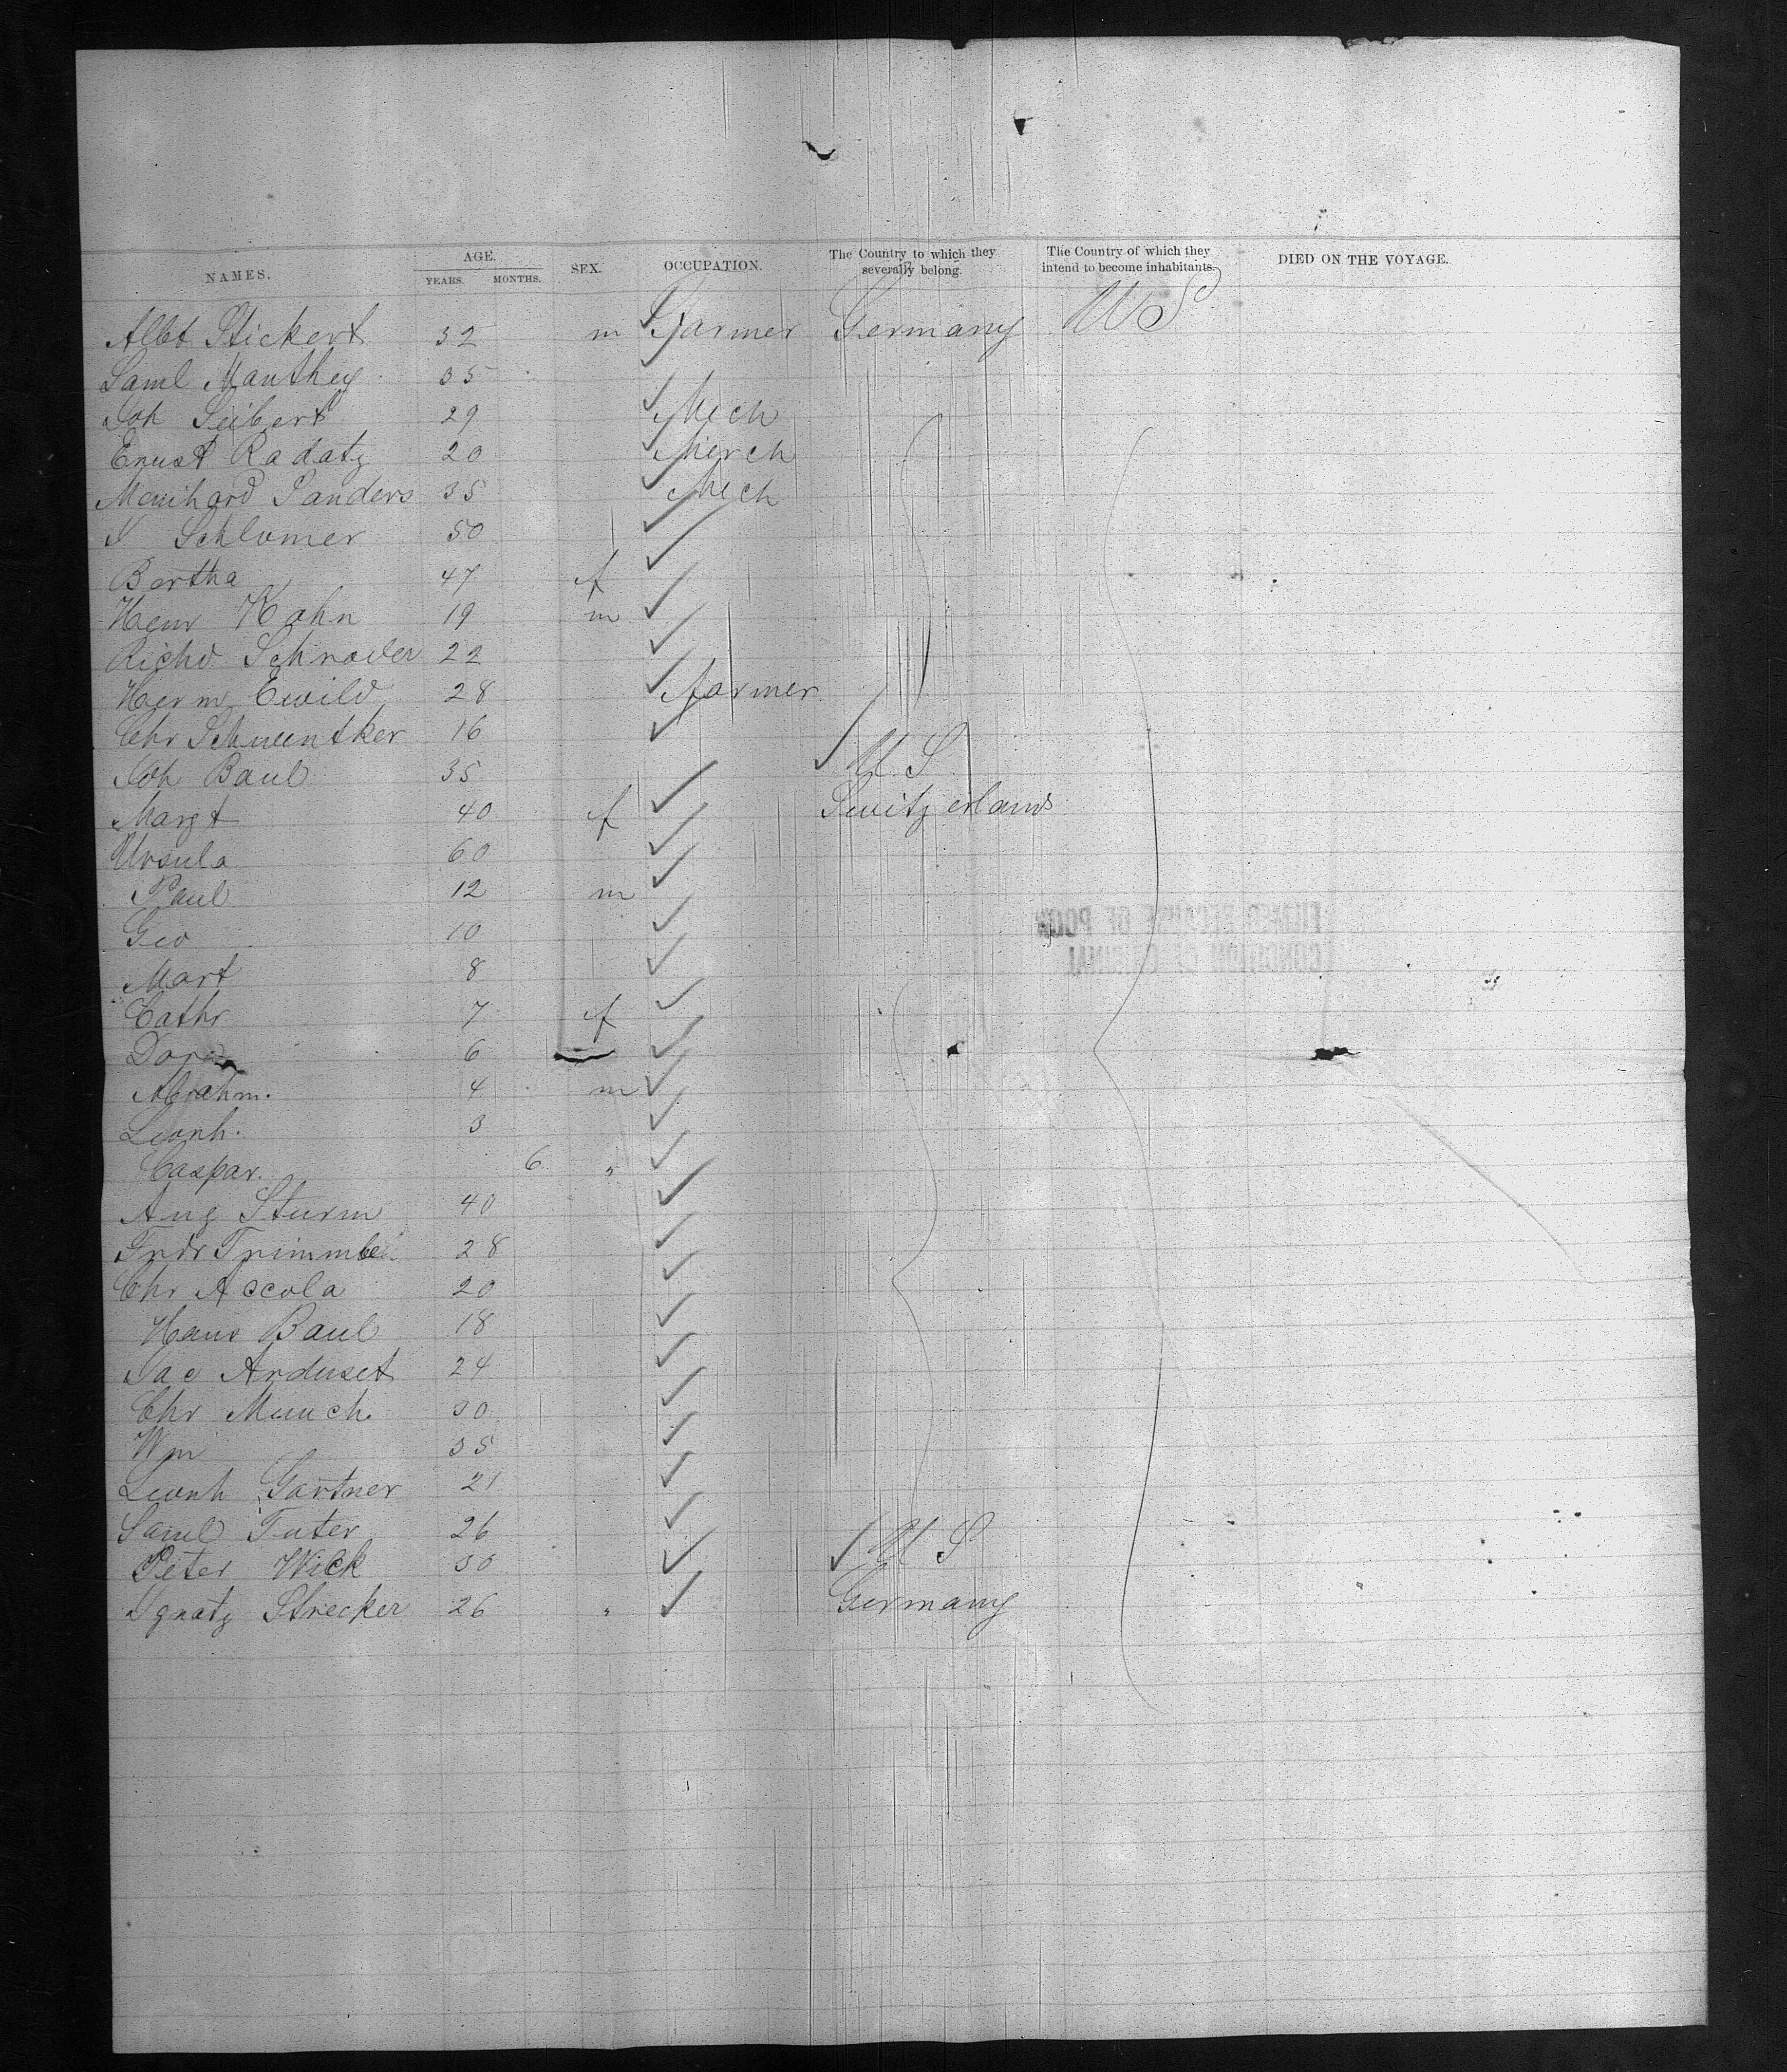 NAMES. AGE. YEARS. MONTHS. SEX. OCCUPATION. The Country to which they severally belong. The Country of which they intend to become inhabitants. DIED ON THE VOYAGE.
Albt Stickert 32 m Farmer Germany U S
Saml Manthey 35
Joh Seibert 29 Mech
Ernst Radatz 20 Merch
Meinhard Sanders 35 Mech
J Schlomer 50
Bertha 47 f
Henr Kohn 19 m
Richd Schrader 22
Herm Ewild 28 farmer
Chr Schwentker 16
Joh Baul 35 U. S.
Margt 40 f Switzerland
Ursula 60
Paul 12 m
Geo 10
Mart 8
Cathr 7 f
Dora 6
Abrahm. 4 m
Leonh. 3
Caspar. 6 "
Aug Sturm 40
Frdr Trimmbe 28
Chr Accola 20
Hans Baul 18
Jac Arduset 24
Chr Munch 30
Wm 35
Leonh Gartner 21
Saml Tuter 26
Peter Wick 30 U S
Ignatz Strecker 26 " Germany
FILMED BECAUSE OF POOR
CONDITION OF ORIGINAL